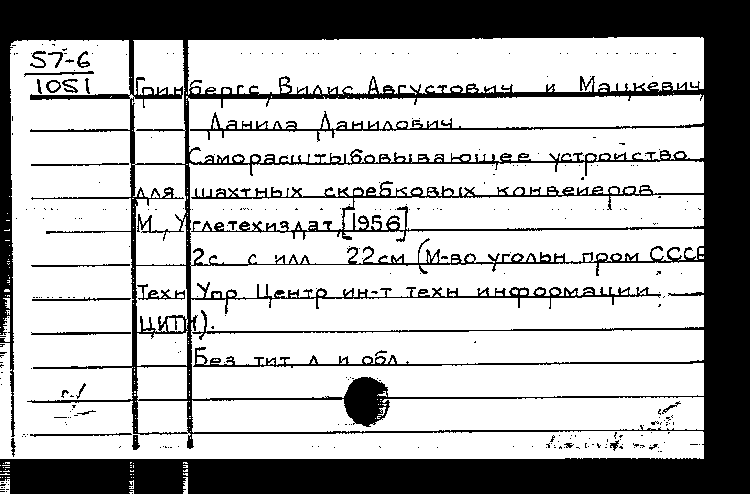 57-6
1051
Гринбергс, Вилис Августович и Мацкевич,
Данила Данилович.
Саморасштыбовывающее устройство
для шахтных скребковых конвейеров.
М., Углетехиздат, [1956]
2с. с илл. 22см. (М-во угольн. пром. СССР
Техн. Упр. Центр. ин-т техн. информации
ЦИТИ).
Без тит. л. и обл.